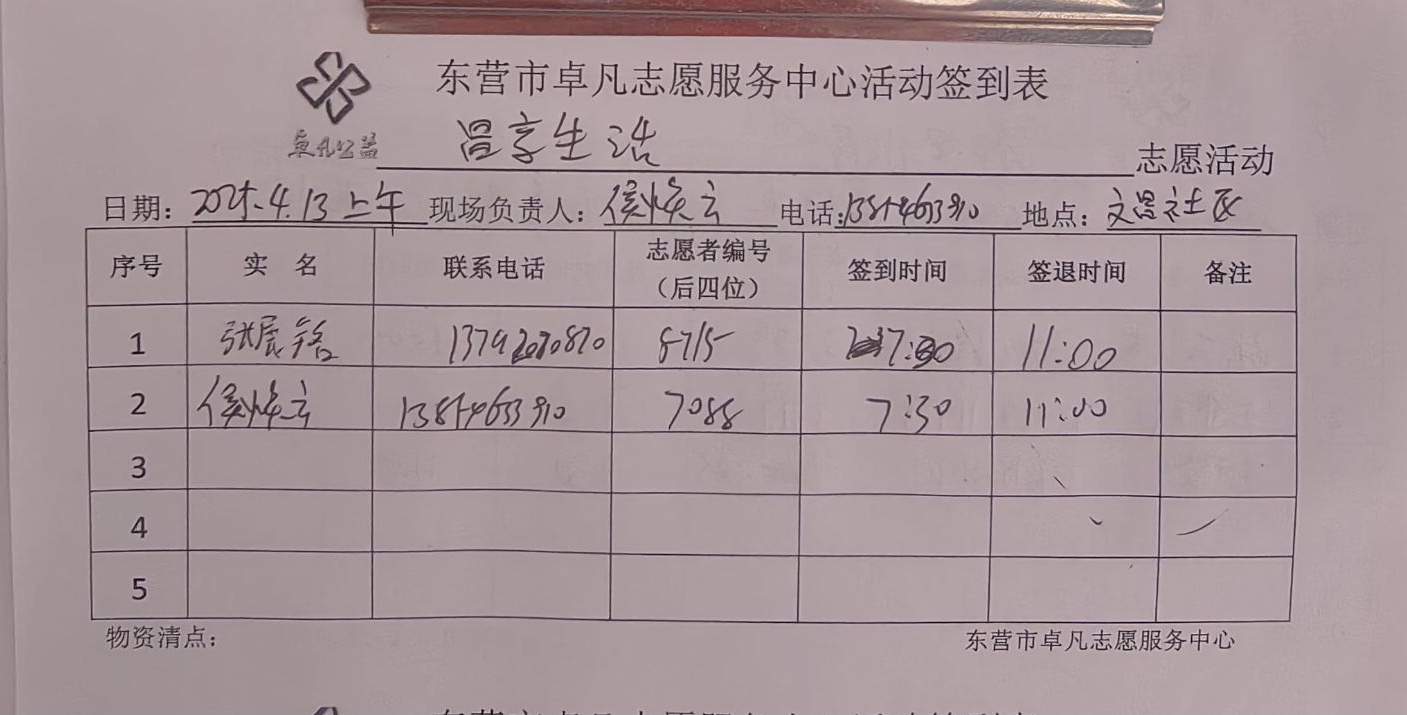 东营市卓凡志愿服务中心活动签到表
卓凡公益 昌享生活 志愿活动
日期：2025.4.13上午 现场负责人：侯焕云 电话：13854633910 地点：文昌社区
序号 实 名 联系电话 志愿者编号（后四位） 签到时间 签退时间 备注
1 张展铭 8715 7:30 11:00
2 侯焕云 13854633910 7088 7:30 11:00
3
4
5
物资清点： 东营市卓凡志愿服务中心